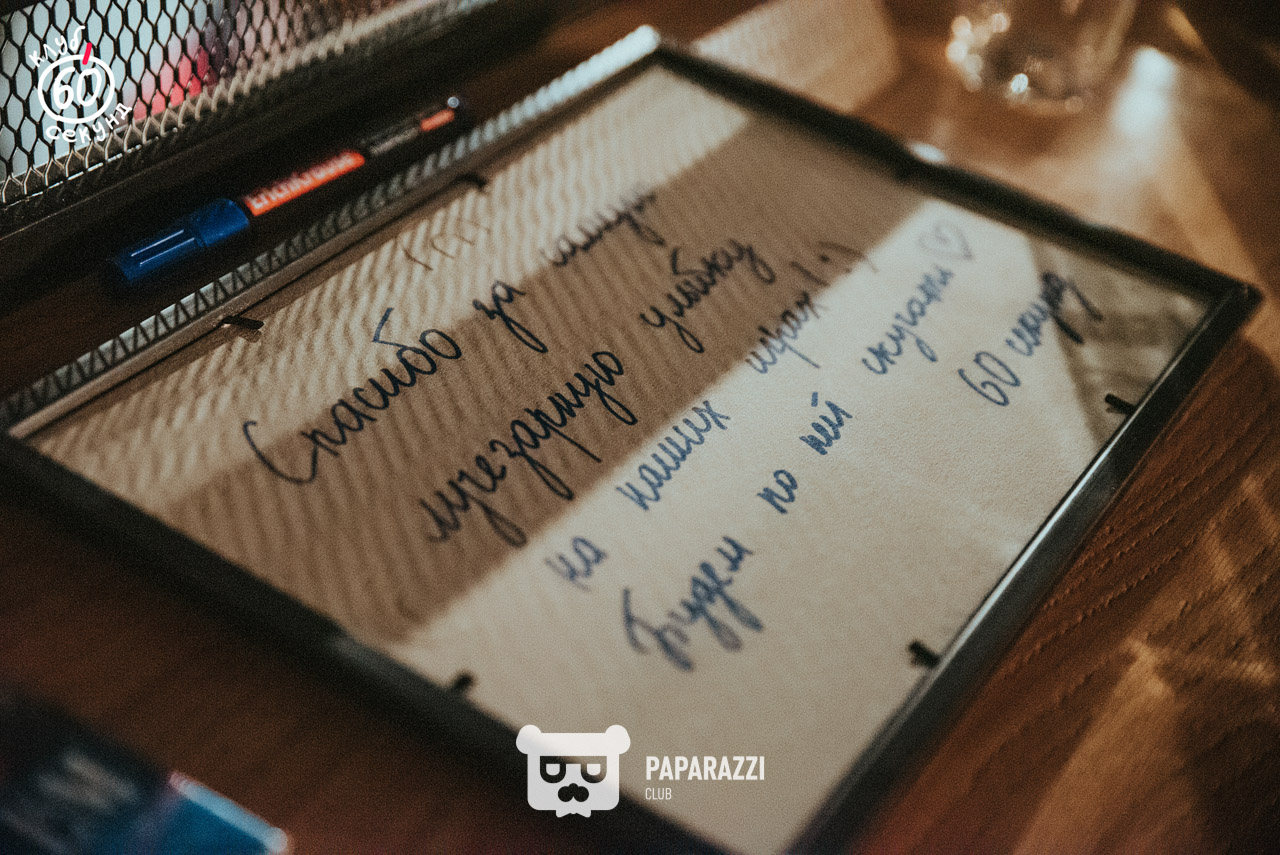 Клуб
60
секунд
ErichKrause
Спасибо за самую
лучезарную улыбку
на наших играх! :)
Будем по ней скучать ♡
60 секунд
PAPARAZZI
CLUB